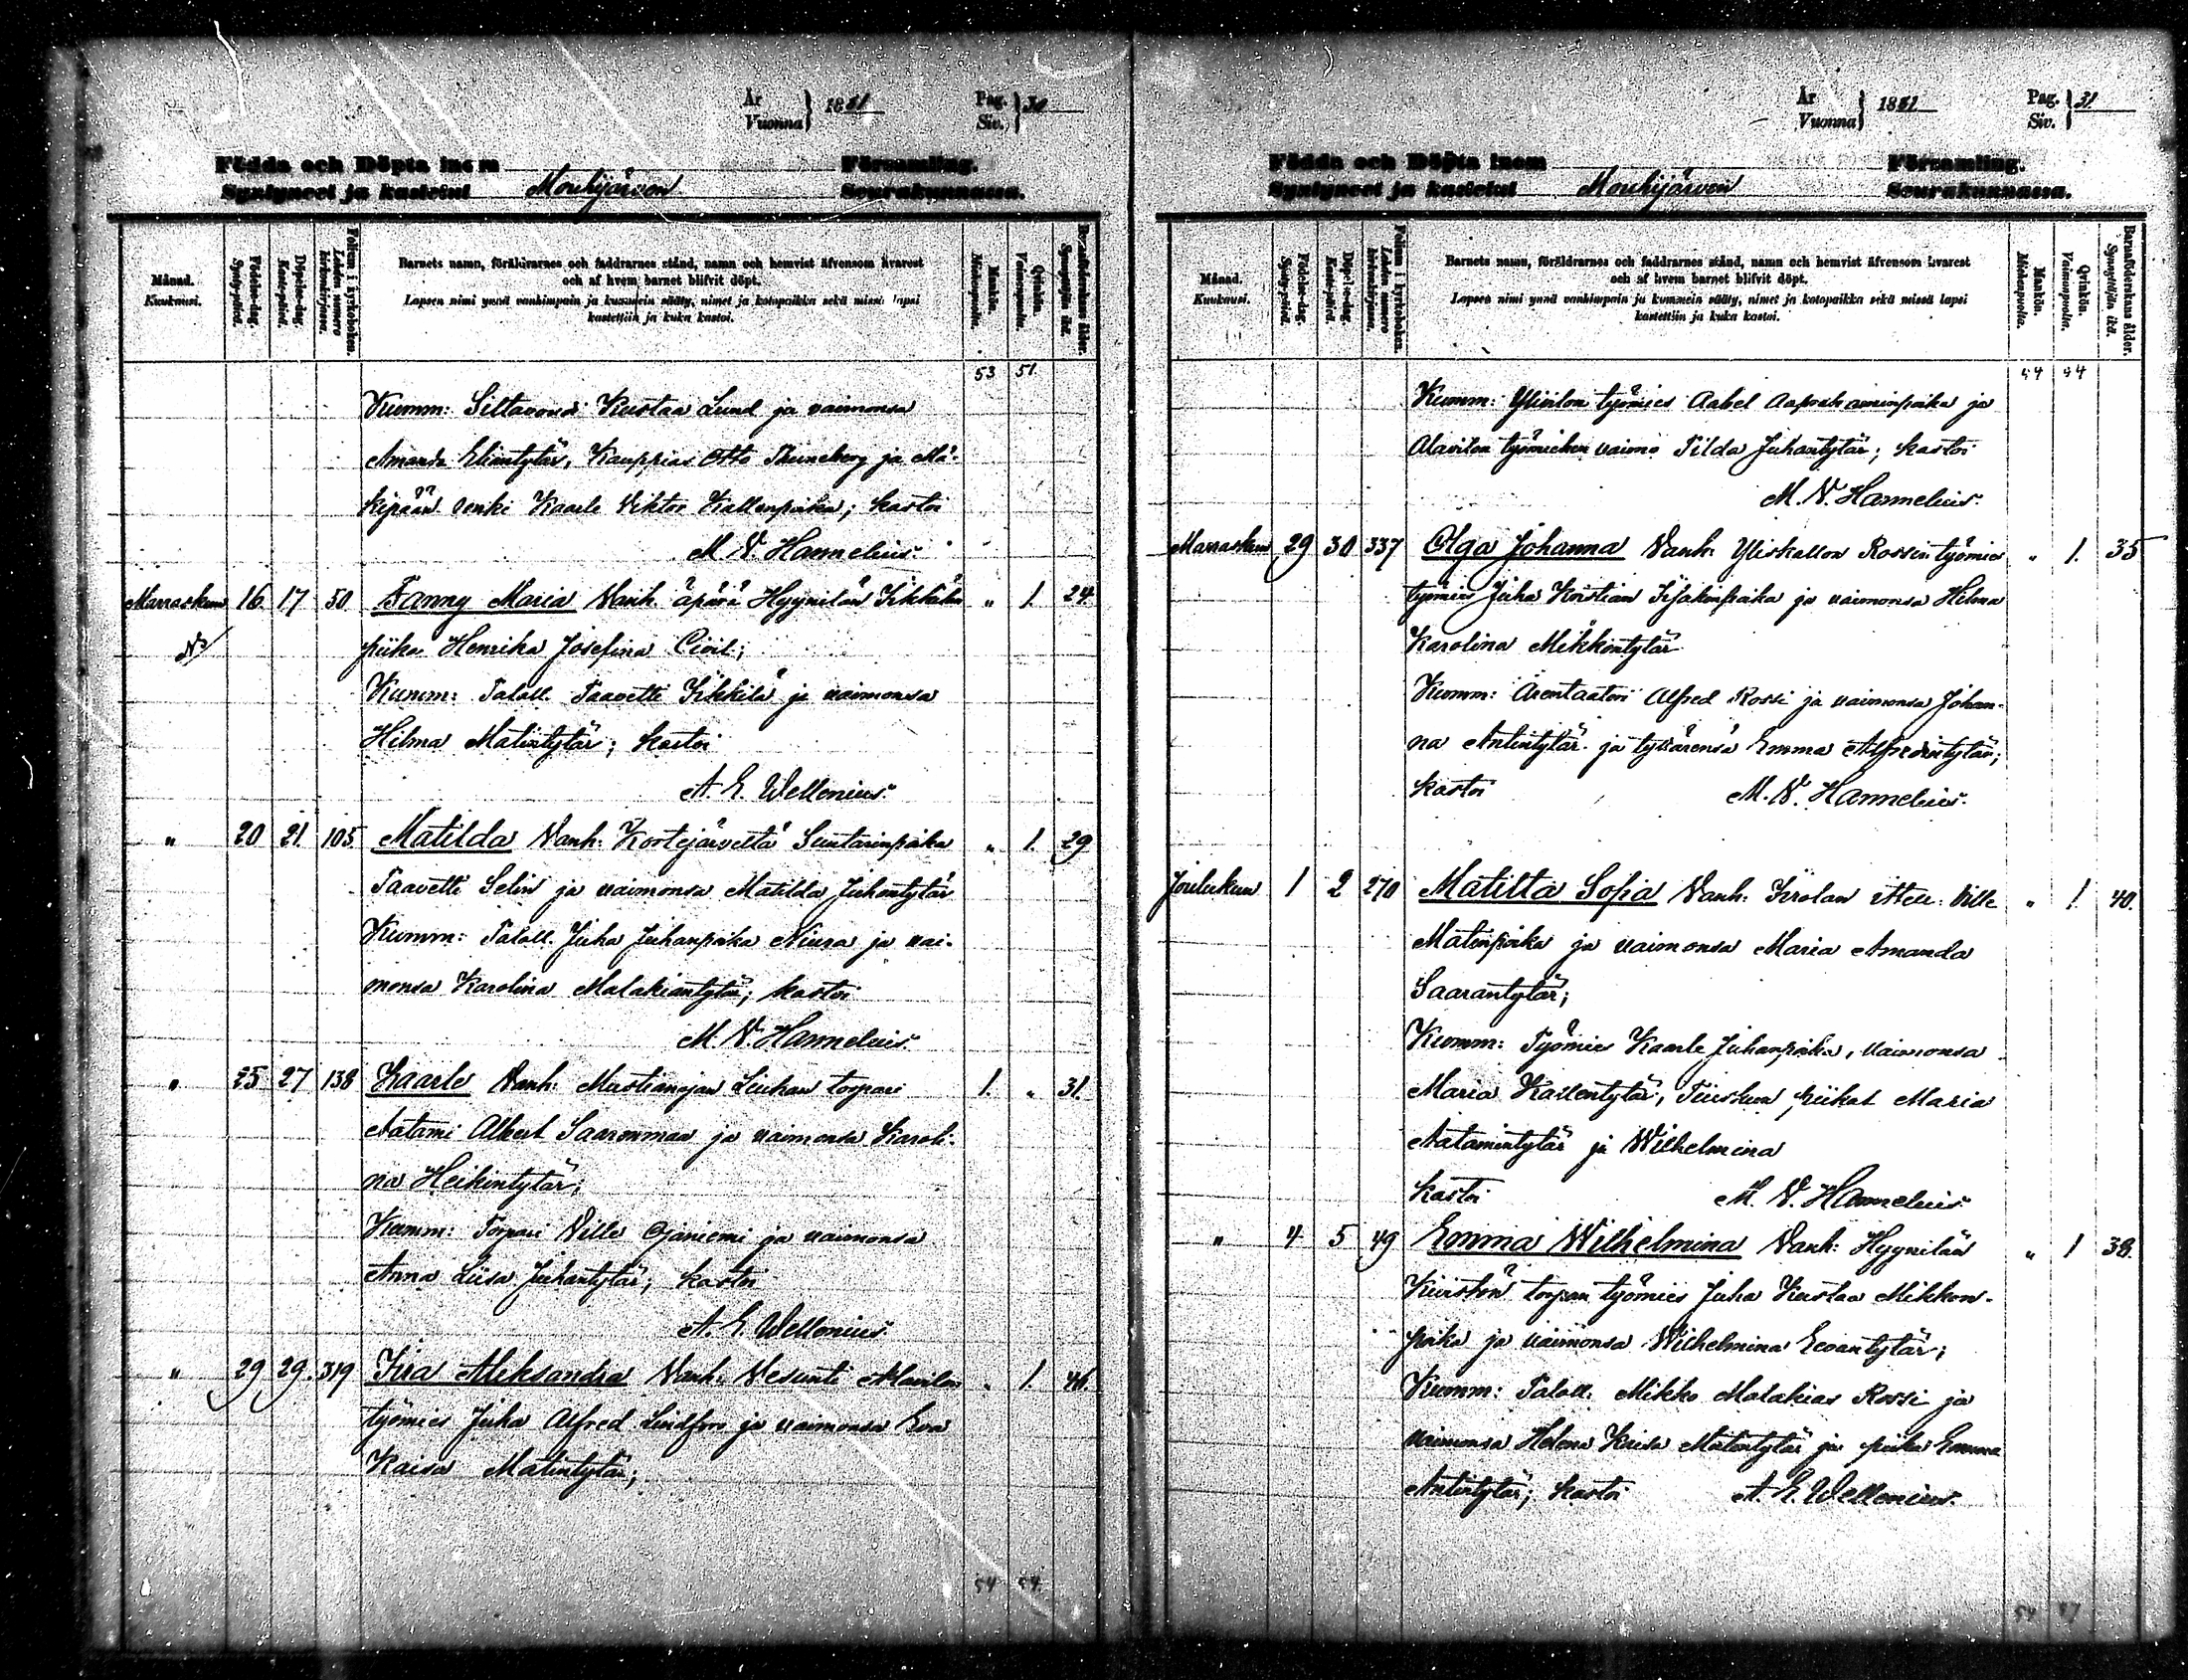 År
Vuonna } 1881
Pag.
Siv. } 30
Födda och Döpta inom Församling.
Syntyneet ja kastetut Mouhijärven Seurakunnassa.
Månad.
Kuukausi.
Födelse-dag.
Synty-päivä.
Döpelse-dag.
Kaste-päivä.
Folium i kyrkoboken.
Lehden numero kirkonkirjassa.
Barnets namn, föräldrarnes och faddrarnes stånd, namn och hemvist äfvensom hvarest
och af hvem barnet blifvit döpt.
Lapsen nimi ynnä vanhimpain ja kummein sääty, nimet ja kotopaikka sekä missä lapsi
kastettiin ja kuka kastoi.
Mankön.
Miehenpuolia.
Qvinkön.
Vaimonpuolia.
Barnaföderskans ålder.
Synnyttäjän ikä.
53 51
Kumm: Siltavouti Kustaa Lund ja vaimonsa
Amanda Eliantytär, Kauppias Otto Thuneberg ja Mä-
kipään renki Kaarle Viktor Kallenpoika; kastoi
M. V. Hannelius.
Marraskuu 16 17 50 Fanny Maria Vanh. äpärä Hyynilän " 1. 24
piika Henrika Josefina
Kumm: Taloll. Taavetti ja vaimonsa
Hilma Matintytär; kastoi
A. E. Wellenius.
" 20 21 105 Matilda Vanh: Kortejärveltä Suutarinpoika " 1. 29
Taavetti Selin ja vaimonsa Matilda Juhantytär
Kumm: Taloll. Juha Juhanpoika ja vai-
monsa Karolina Malakiantytär; kastoi
M. V. Hannelius.
" 25 27 138 Kaarle Vanh: Mustianojan Liuhan torpari 1. " 31.
Aatami Albert Saarenmaa ja vaimonsa Karoli-
na Heikintytär;
Kumm: Torpari Ville Ojaniemi ja vaimonsa
Anna Liisa Juhantytär; kastoi
A. E. Wellenius
" 29 29 319 Iira Aleksandra Vanh: Vesunti Alavilon " 1. 46.
työmies Juha Alfred Lindfors ja vaimonsa Eva
Kaisa Matintytär;
54 54
År
Vuonna } 1881
Pag.
Siv. } 31.
Födda och Döpta inom Församling.
Syntyneet ja kastetut Mouhijärven Seurakunnassa.
Månad.
Kuukausi.
Födelse-dag.
Synty-päivä.
Döpelse-dag.
Kaste-päivä.
Folium i kyrkoboken.
Lehden numero kirkonkirjassa.
Barnets namn, föräldrarnes och faddrarnes stånd, namn och hemvist äfvensom hvarest
och af hvem barnet blifvit döpt.
Lapsen nimi ynnä vanhimpain ja kummein sääty, nimet ja kotopaikka sekä missä lapsi
kastettiin ja kuka kastoi.
Mankön.
Miehenpuolia.
Qvinkön.
Vaimonpuolia.
Barnaföderskans ålder.
Synnyttäjän ikä.
54 54
Kumm: Ylivilon työmies Aabel Aaprahaminpoika ja
Alavilon työmiehen vaimo Tilda Juhantytär; kastoi
M. V. Hannelius.
Marraskuu 29 30 337 Olga Johanna Vanh: Yliskallon Rossin työmies " 1. 35
työmies Juha Kristian Iisakinpoika ja vaimonsa Hilma
Karolina Mikkintytär
Kumm: Arentaatori Alfred Rossi ja vaimonsa Johan-
na Antintytär ja tyttärensä Emma Alfredintytär;
kastoi M. V. Hannelius.
Joulukuu 1 2 270 Matilta Sofia Vanh: Ville " 1 40.
Matinpoika ja vaimonsa Maria Amanda
Saarantytär;
Kumm: Työmies Kaarle Juhanpoika, vaimonsa
Maria Kallentytär, piikat Maria
Aatamintytär ja Wilhelmina
kastoi M. V. Hannelius.
" 4 5 49 Emma Wilhelmina Vanh: Hyynilän " 1 38.
torpan työmies Juha Kustaa Mikkon-
poika ja vaimonsa Wilhelmina Eevantytär;
Kumm: Taloll. Mikko Malakias Rossi ja
vaimonsa Helena Kaisa Matintytär ja piika Emma
Antintytär; kastoi A. E. Wellenius.
54 57